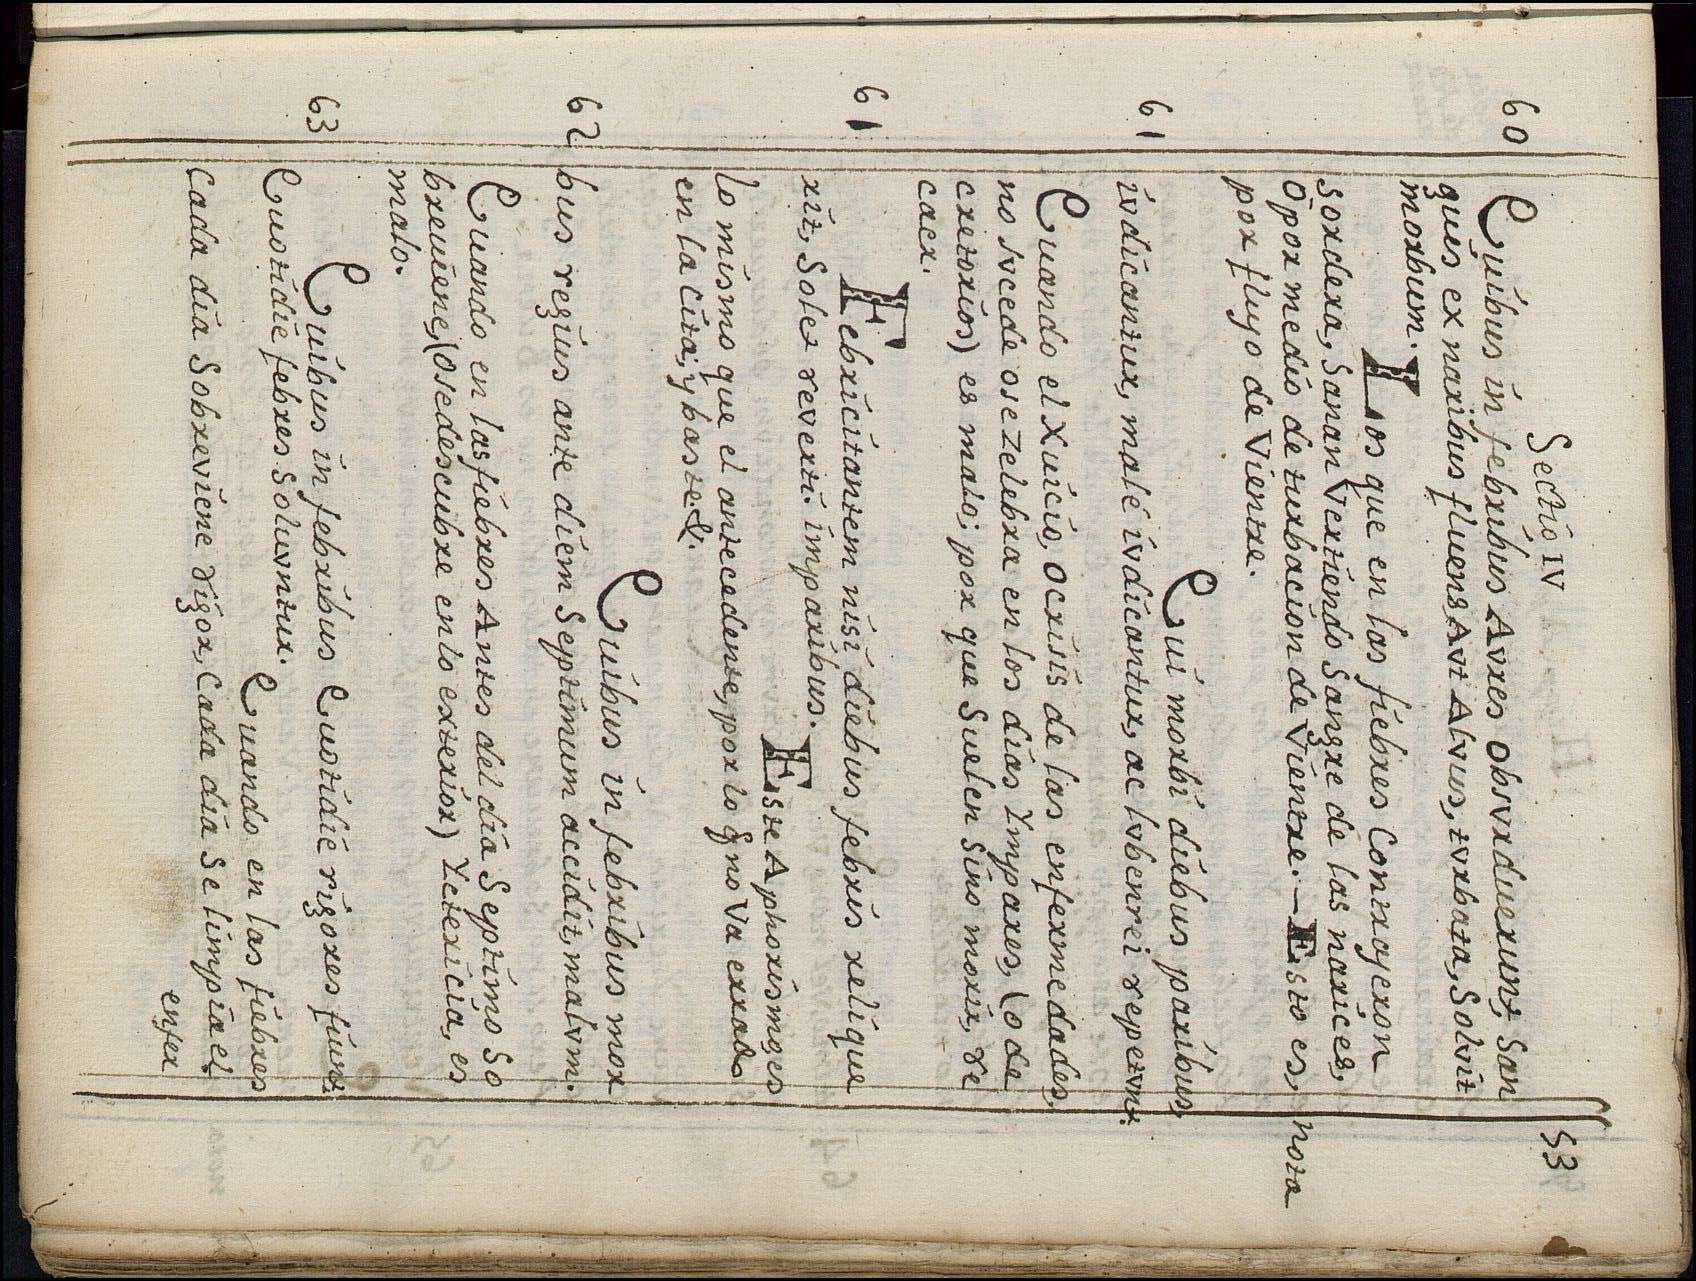 Sectio IV
53
60 Quibus in febribus Avres obsvrduerunt, San
guis ex naribus fluens, Avt Alvus, tvrbata, Solvit
morbum. Los que en las fiebres Contrageron
sordera, Sanan Vertiendo Sangre de las narices,
o por medio de turbacion de Vientre.- Esto es, nota
por flujo de Vientre.
61 Qui morbi diebus paribus,
ivdicantur, malé ivdicantur, ac lvbenrei repetvnt.
Quando el Xuicio, o crisis de las enfermedades,
no svcede o se zelebra en los dias Ympares, (o de
cretorios) es malo; por que Suelen Sino morir, re
caer.
61 Febricitantem nisi diebus febris relique
rit, Solet reverti imparibus. Este Aphorismo, es
lo mismo que el antecedente, por lo q no Va errado
en la Cita; y baste. &.
62 Quibus in febribus mor
bus regius ante diem Septimum accidit, malvm.
Quando en las fiebres Antes del dia Septimo So
breviene, (o se descubre en lo exterior) Yctericia, es
malo.
63 Quibus in febribus Quotidie rigores fiunt.
Quotidie febres Soluvntur. Quando en las fiebres
Cada dia Sobreviene rigor, Cada dia Se limpia el
enfer